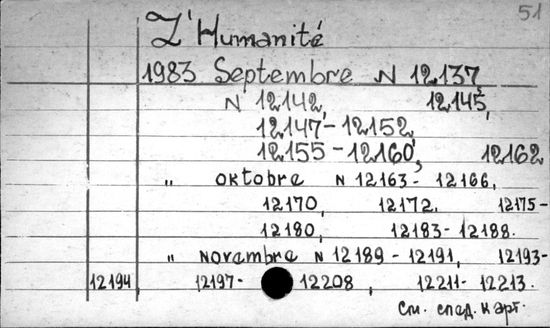 51
L'Humanité
1983 Septembre N 12137,
N 12142, 12145,
12147-12152,
12155-12160, 12162
" oktobre N 12163- 12166,
12170, 12172. 12175-
12180, 12183-12188.
" Novembre N 12189-12191, 12193-
12194, 12197- 12208, 12211-12213.
См. след. карт.